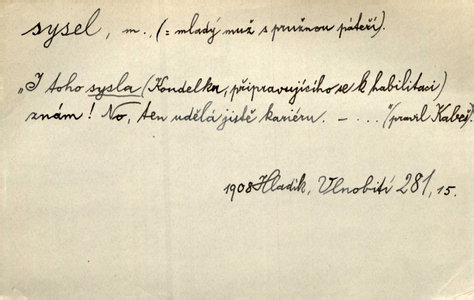 sysel, m., (= mladý muž s pružnou páteří).
„I toho sysla (Kondelka, připravujícího se k habilitaci)
znám! No, ten udělá jistě kariéru. – ..." (pravil Kabeš).
1908 Hladík, Vlnobití 281, 15.